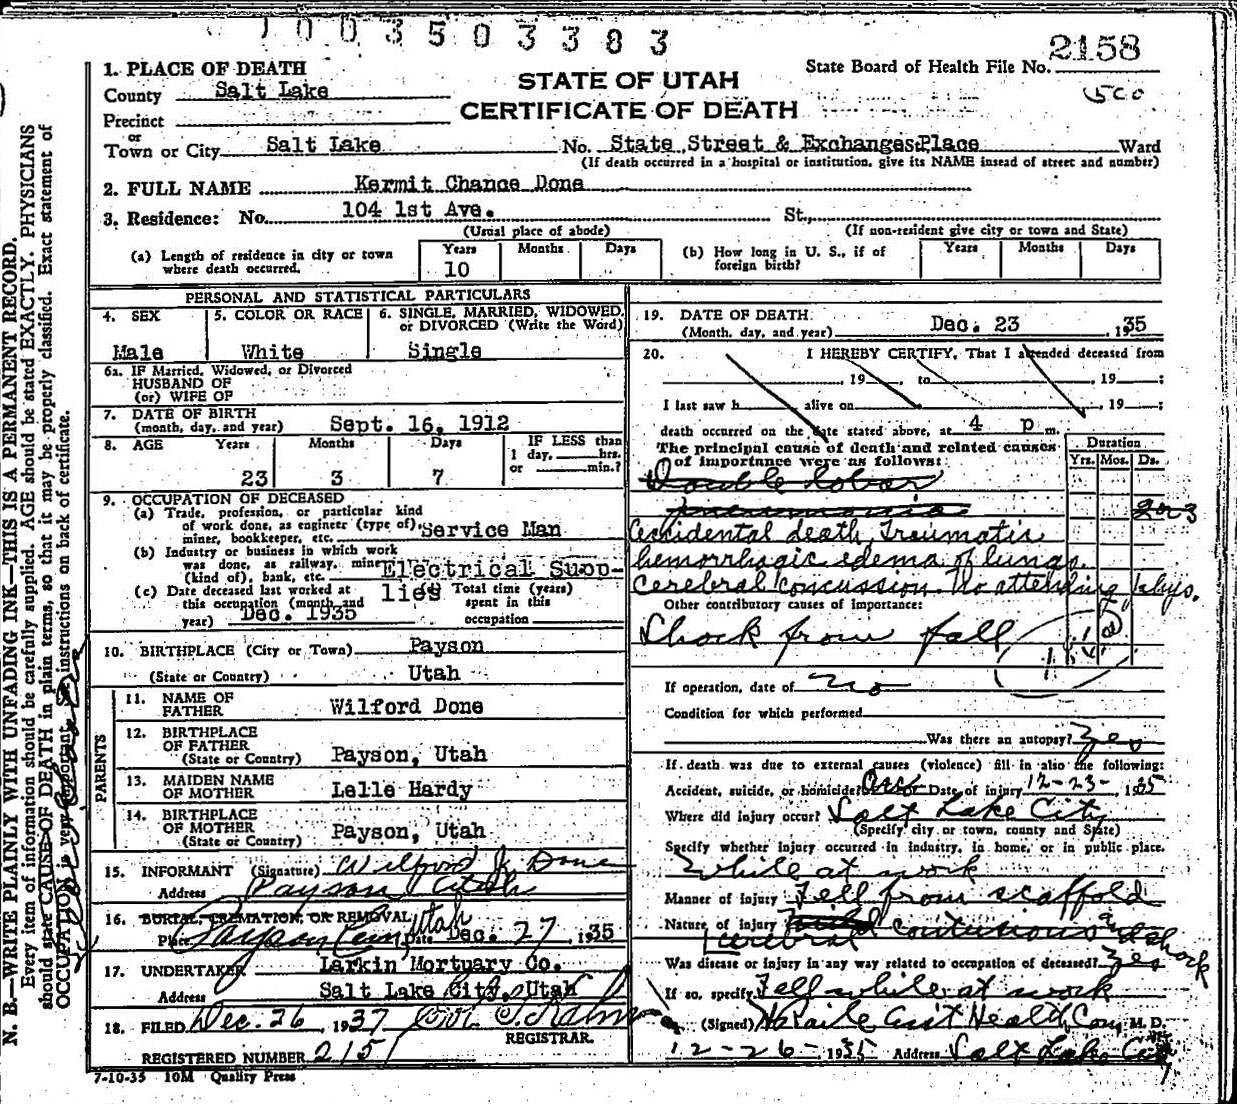 1003503383
2158
1. PLACE OF DEATH
STATE OF UTAH
State Board of Health File No.
County Salt Lake
CERTIFICATE OF DEATH
500
Precinct
or
Town or City Salt Lake No. State Street & Exchange Place Ward
(If death occurred in a hospital or institution, give its NAME insead of street and number)
2. FULL NAME Kermit Chance Done
3. Residence: No. 104 1st Ave. St.,
(Usual place of abode) (If non-resident give city or town and State)
(a) Length of residence in city or town where death occurred. Years Months Days
10
(b) How long in U. S., if of foreign birth? Years Months Days
N. B.—WRITE PLAINLY WITH UNFADING INK—THIS IS A PERMANENT RECORD.
Every item of information should be carefully supplied. AGE should be stated EXACTLY. PHYSICIANS
should state CAUSE OF DEATH in plain terms, so that it may be properly classified. Exact statement of
OCCUPATION is very important. See instructions on back of certificate.
PERSONAL AND STATISTICAL PARTICULARS
4. SEX 5. COLOR OR RACE 6. SINGLE, MARRIED, WIDOWED, or DIVORCED (Write the Word)
Male White Single
6a. IF Married, Widowed, or Divorced
HUSBAND OF
(or) WIFE OF
7. DATE OF BIRTH
(month, day, and year) Sept. 16, 1912
8. AGE Years Months Days IF LESS than
1 day, hrs.
or min.?
23 3 7
9. OCCUPATION OF DECEASED
(a) Trade, profession, or particular kind
of work done, as engineer (type of)
miner, bookkeeper, etc. Service Man
(b) Industry or business in which work
was done, as railway, mine
(kind of), bank, etc. Electrical Supp-
lies
(c) Date deceased last worked at
this occupation (month and
year) Dec. 1935
Total time (years)
spent in this
occupation
10. BIRTHPLACE (City or Town) Payson
(State or Country) Utah
PARENTS
11. NAME OF
FATHER Wilford Done
12. BIRTHPLACE
OF FATHER
(State or Country) Payson, Utah
13. MAIDEN NAME
OF MOTHER Lelle Hardy
14. BIRTHPLACE
OF MOTHER
(State or Country) Payson, Utah
15. INFORMANT (Signature) Wilford J. Done
Address Payson Utah
16. BURIAL, CREMATION, OR REMOVAL
Place Payson Cem, Utah Date Dec. 27, 1935
17. UNDERTAKER Larkin Mortuary Co.
Address Salt Lake City, Utah
18. FILED Dec. 26, 1937
REGISTRAR.
REGISTERED NUMBER 2151
7-10-35 10M Quality Press
19. DATE OF DEATH
(Month, day, and year) Dec. 23, 1935
20. I HEREBY CERTIFY, That I attended deceased from
, 19 , to , 19 ;
I last saw h alive on , 19 ;
death occurred on the date stated above, at 4 p m.
The principal cause of death and related causes
of importance were as follows:
Duration
Yrs. Mos. Ds.
Double Lobar
pneumonia
Accidental death, Traumatic
hemorrhagic edema of lungs.
Cerebral concussion. No attending phys.
Other contributory causes of importance:
Shock from fall
If operation, date of no
Condition for which performed
Was there an autopsy? Yes
If death was due to external causes (violence) fill in also the following:
Accident, suicide, or homicide? Acc Date of injury 12-23-, 1935
Where did injury occur? Salt Lake City
(Specify city or town, county and State)
Specify whether injury occurred in industry, in home, or in public place.
While at work
Manner of injury Fell from scaffold
Nature of injury Cerebral contusions and shock
Was disease or injury in any way related to occupation of deceased? Yes
If so, specify Fell while at work
(Signed) Asst Health Com, M. D.
12-26-, 1935 Address Salt Lake City